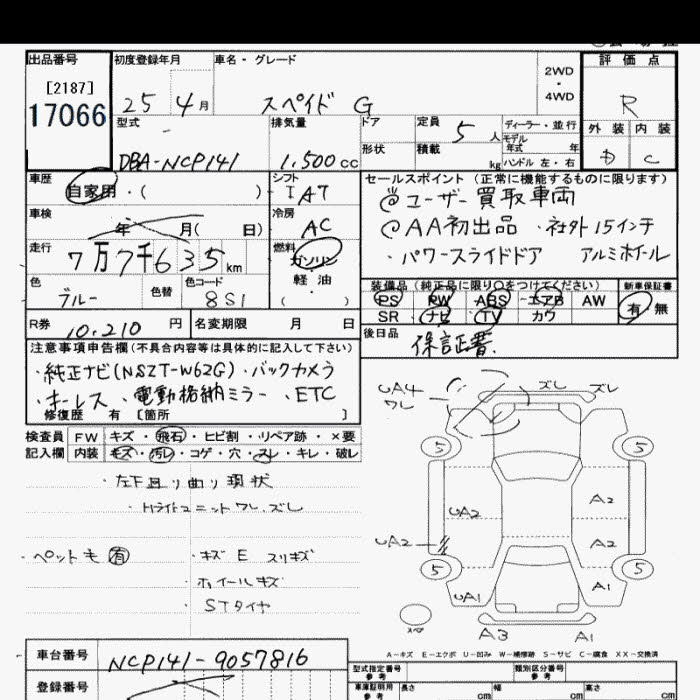 出品番号 初度登録年月 車名・グレード 評価点
[2187]
17066
25 4月 スペイド G
2WD
・
4WD
R
型式 排気量 ドア 定員 ディーラー・並行 外装 内装
5人 モデル
年式 年
DBA-NCP141 1,500cc 形状 積載 kg ハンドル 左・右 D C
車歴 シフト セールスポイント(正常に機能するものに限ります)
自家用・( ) IAT @ユーザー買取車両
車検 冷房 @AA初出品 ・社外15インチ
年 月( 日) AC ・パワースライドドア アルミホイール
走行 燃料
7万7千635km ガソリン
軽油
・
( )
装備品(純正品に限り○をつけてください) 新車保証書
色 色替 色コード PS PW ABS エアB AW 有 無
ブルー 8S1 SR ナビ TV カワ
R券 10,210円 名変期限 月 日 後日品
保証書
注意事項申告欄(不具合内容等は具体的に記入して下さい)
・純正ナビ(NSZT-W62G)・バックカメラ
・キーレス ・電動格納ミラー ・ETC
修復歴 有 [箇所 ]
検査員 FW キズ・飛石・ヒビ割・リペア跡・×要
記入欄 内装 キズ・汚レ・コゲ・穴・スレ・キレ・破レ
・左F回り曲り現状
・Hライトユニットワレ、ズレ
・ペットも有 ・キズE スリキズ
・ホイールキズ
・STタイヤ
UA4 ズレ ズレ
ワレ
5 5
UA2 A2
UA2 A2
5 5
UA1 A1
スペア A3 A1
A-キズ E-エクボ U-凹み W-補修跡 S-サビ C-腐食 XX-交換済
車台番号 NCP141-9057816
登録番号
型式指定番号 参考 類別区分番号 参考
車庫証明用 参考 長さ cm 幅 cm 高さ cm